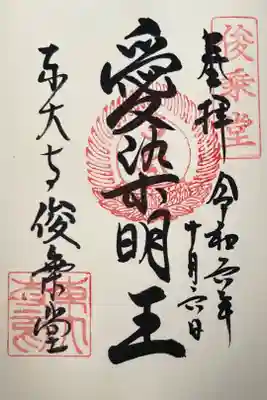 俊乗堂
奉拝 令和六年
十月六日
愛染明王
東大寺俊乗堂